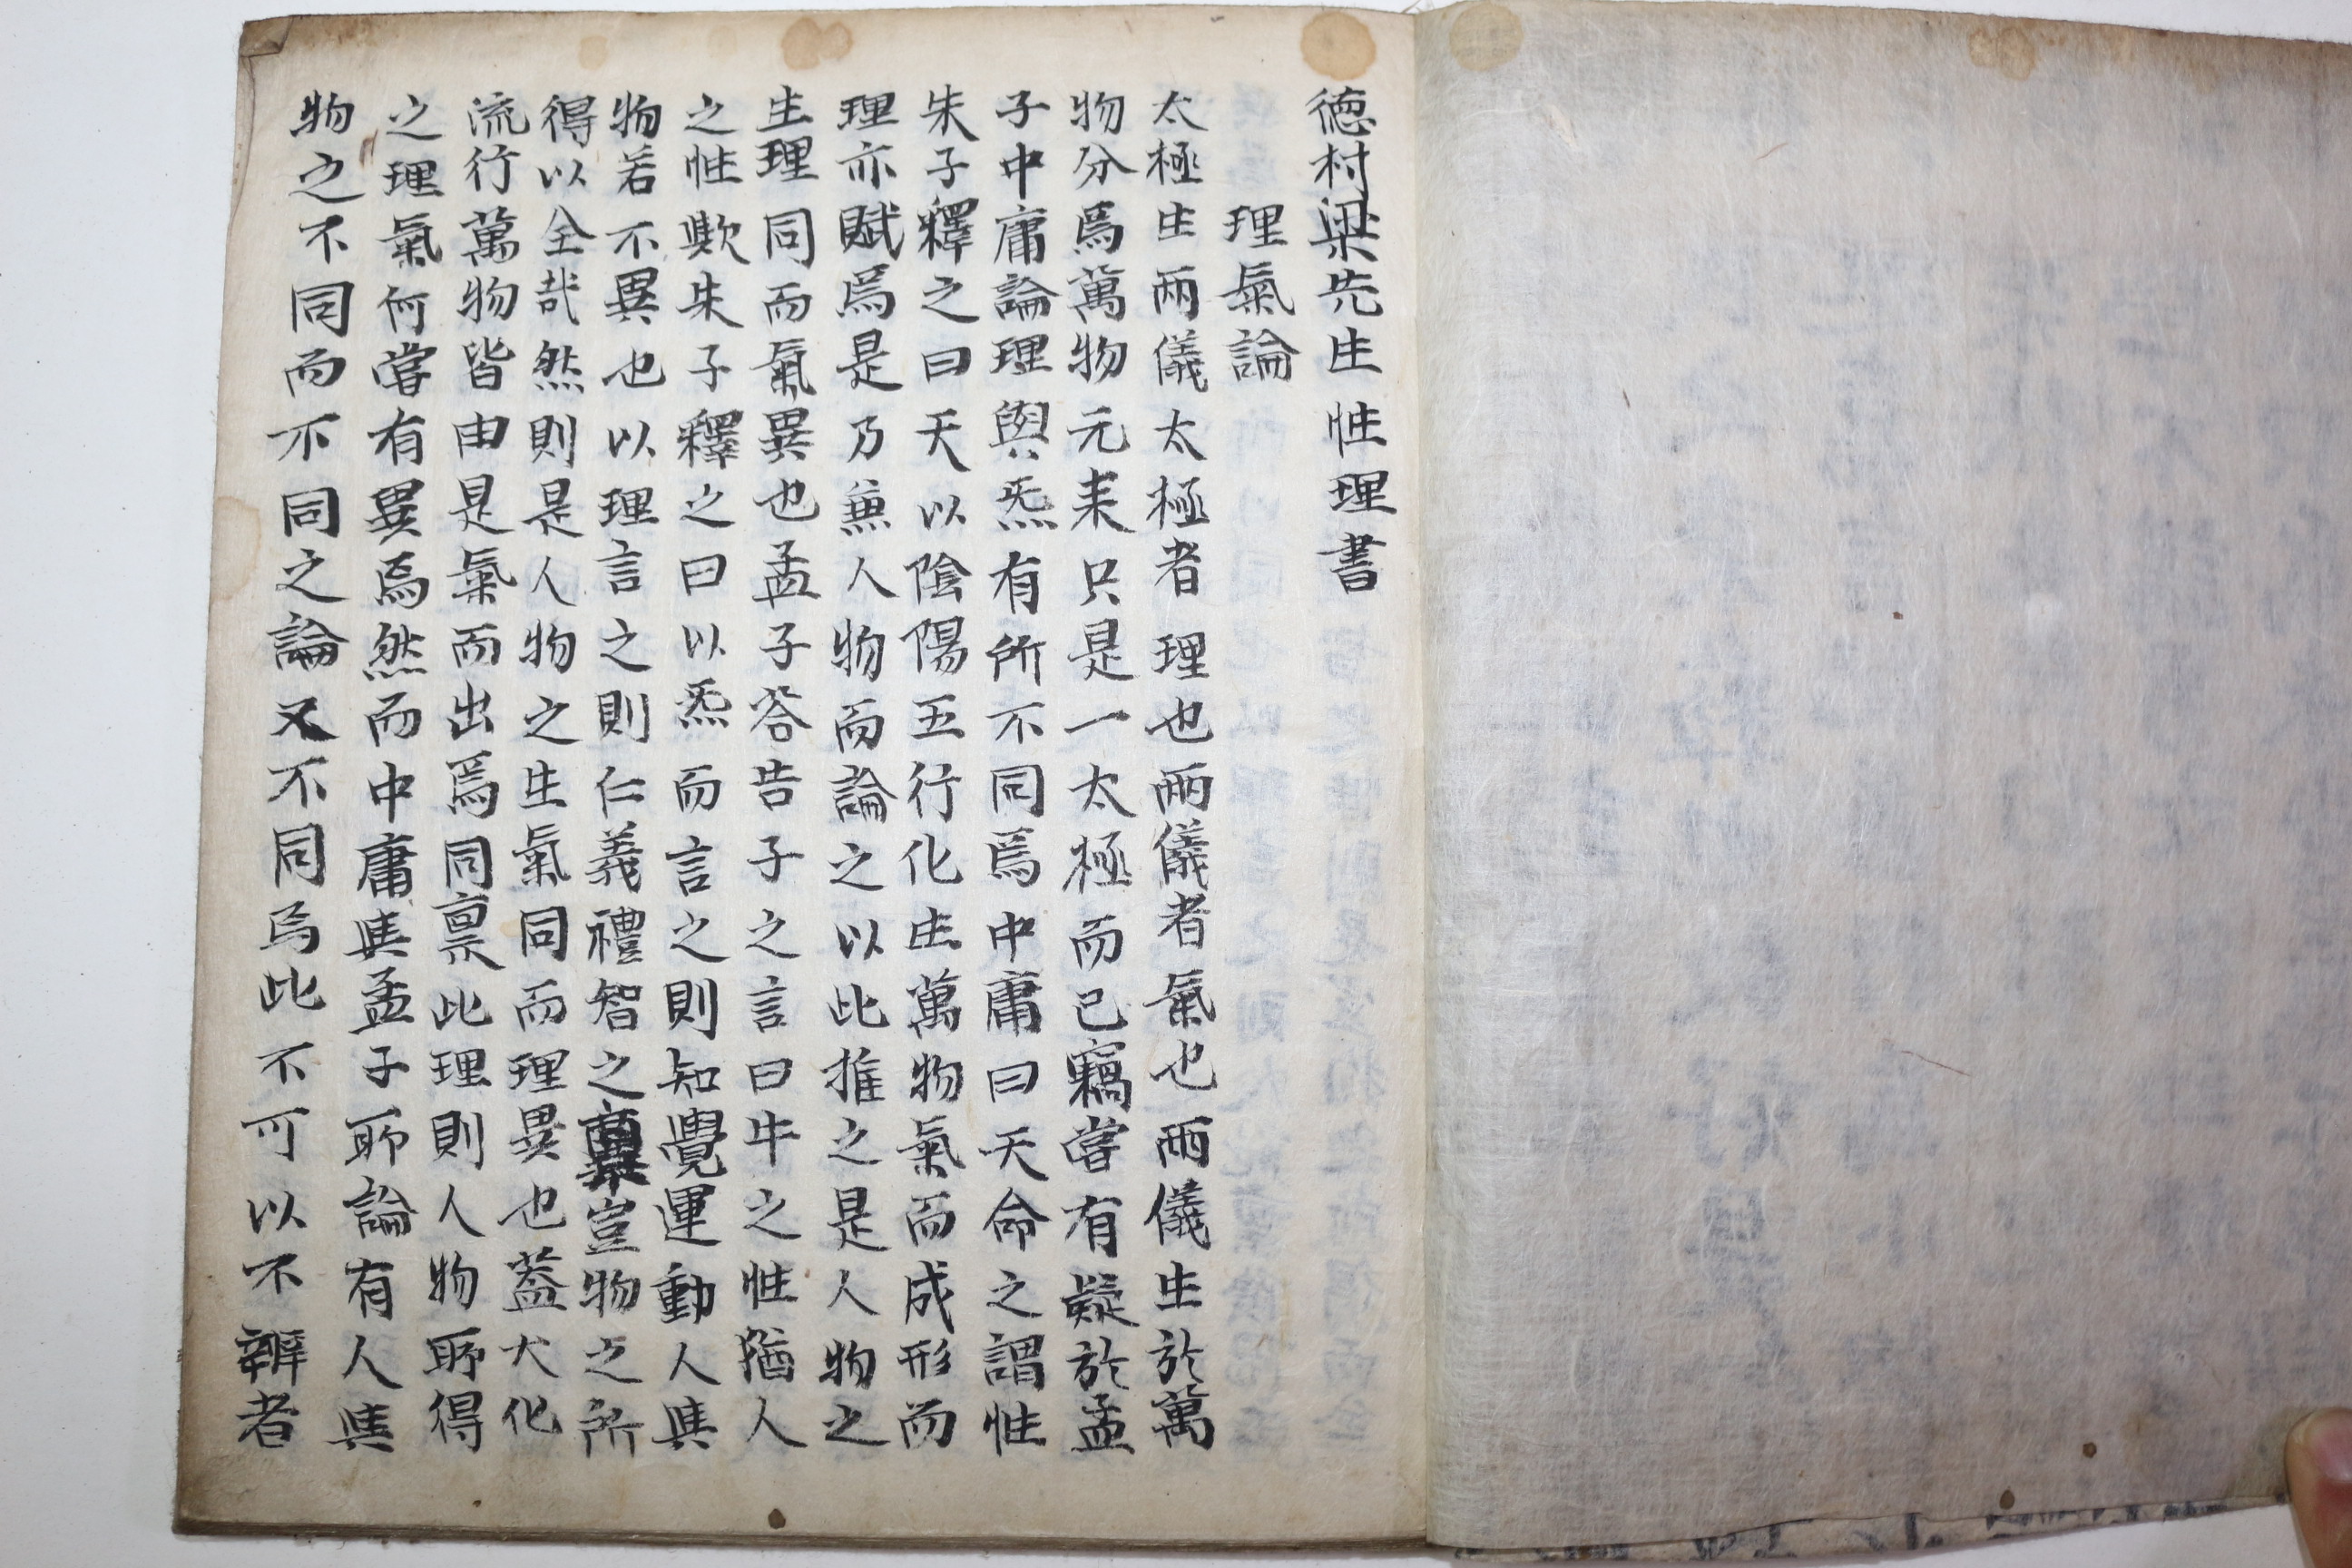 德村梁先生性理書
理氣論
太極生兩儀太極者理也兩儀者氣也兩儀生於萬
物分爲萬物元来只是一太極而已竊嘗有疑於孟
子中庸論理與炁有所不同焉中庸曰天命之謂性
朱子釋之曰天以陰陽五行化生萬物氣而成形而
理亦賦焉是乃兼人物而論之以此推之是人物之
生理同而氣異也孟子答告子之言曰牛之性猶人
之性歟朱子釋之曰以炁而言之則知覺運動人與
物若不異也以理言之則仁義禮智之稟豈物之所
得以全哉然則是人物之生氣同而理異也盖大化
流行萬物皆由是氣而出焉同禀此理則人物所得
之理氣何嘗有異焉然而中庸與孟子所論有人與
物之不同而不同之論又不同焉此不可以不辨者